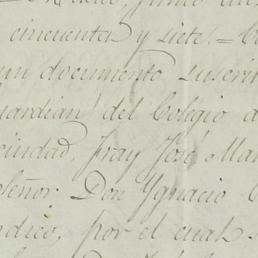 cincuenta y siete. =
un documento suscri
uardian del Colegio d
ciudad, fray José Mar
Señor Don Ygnacio
ndico, por el cual